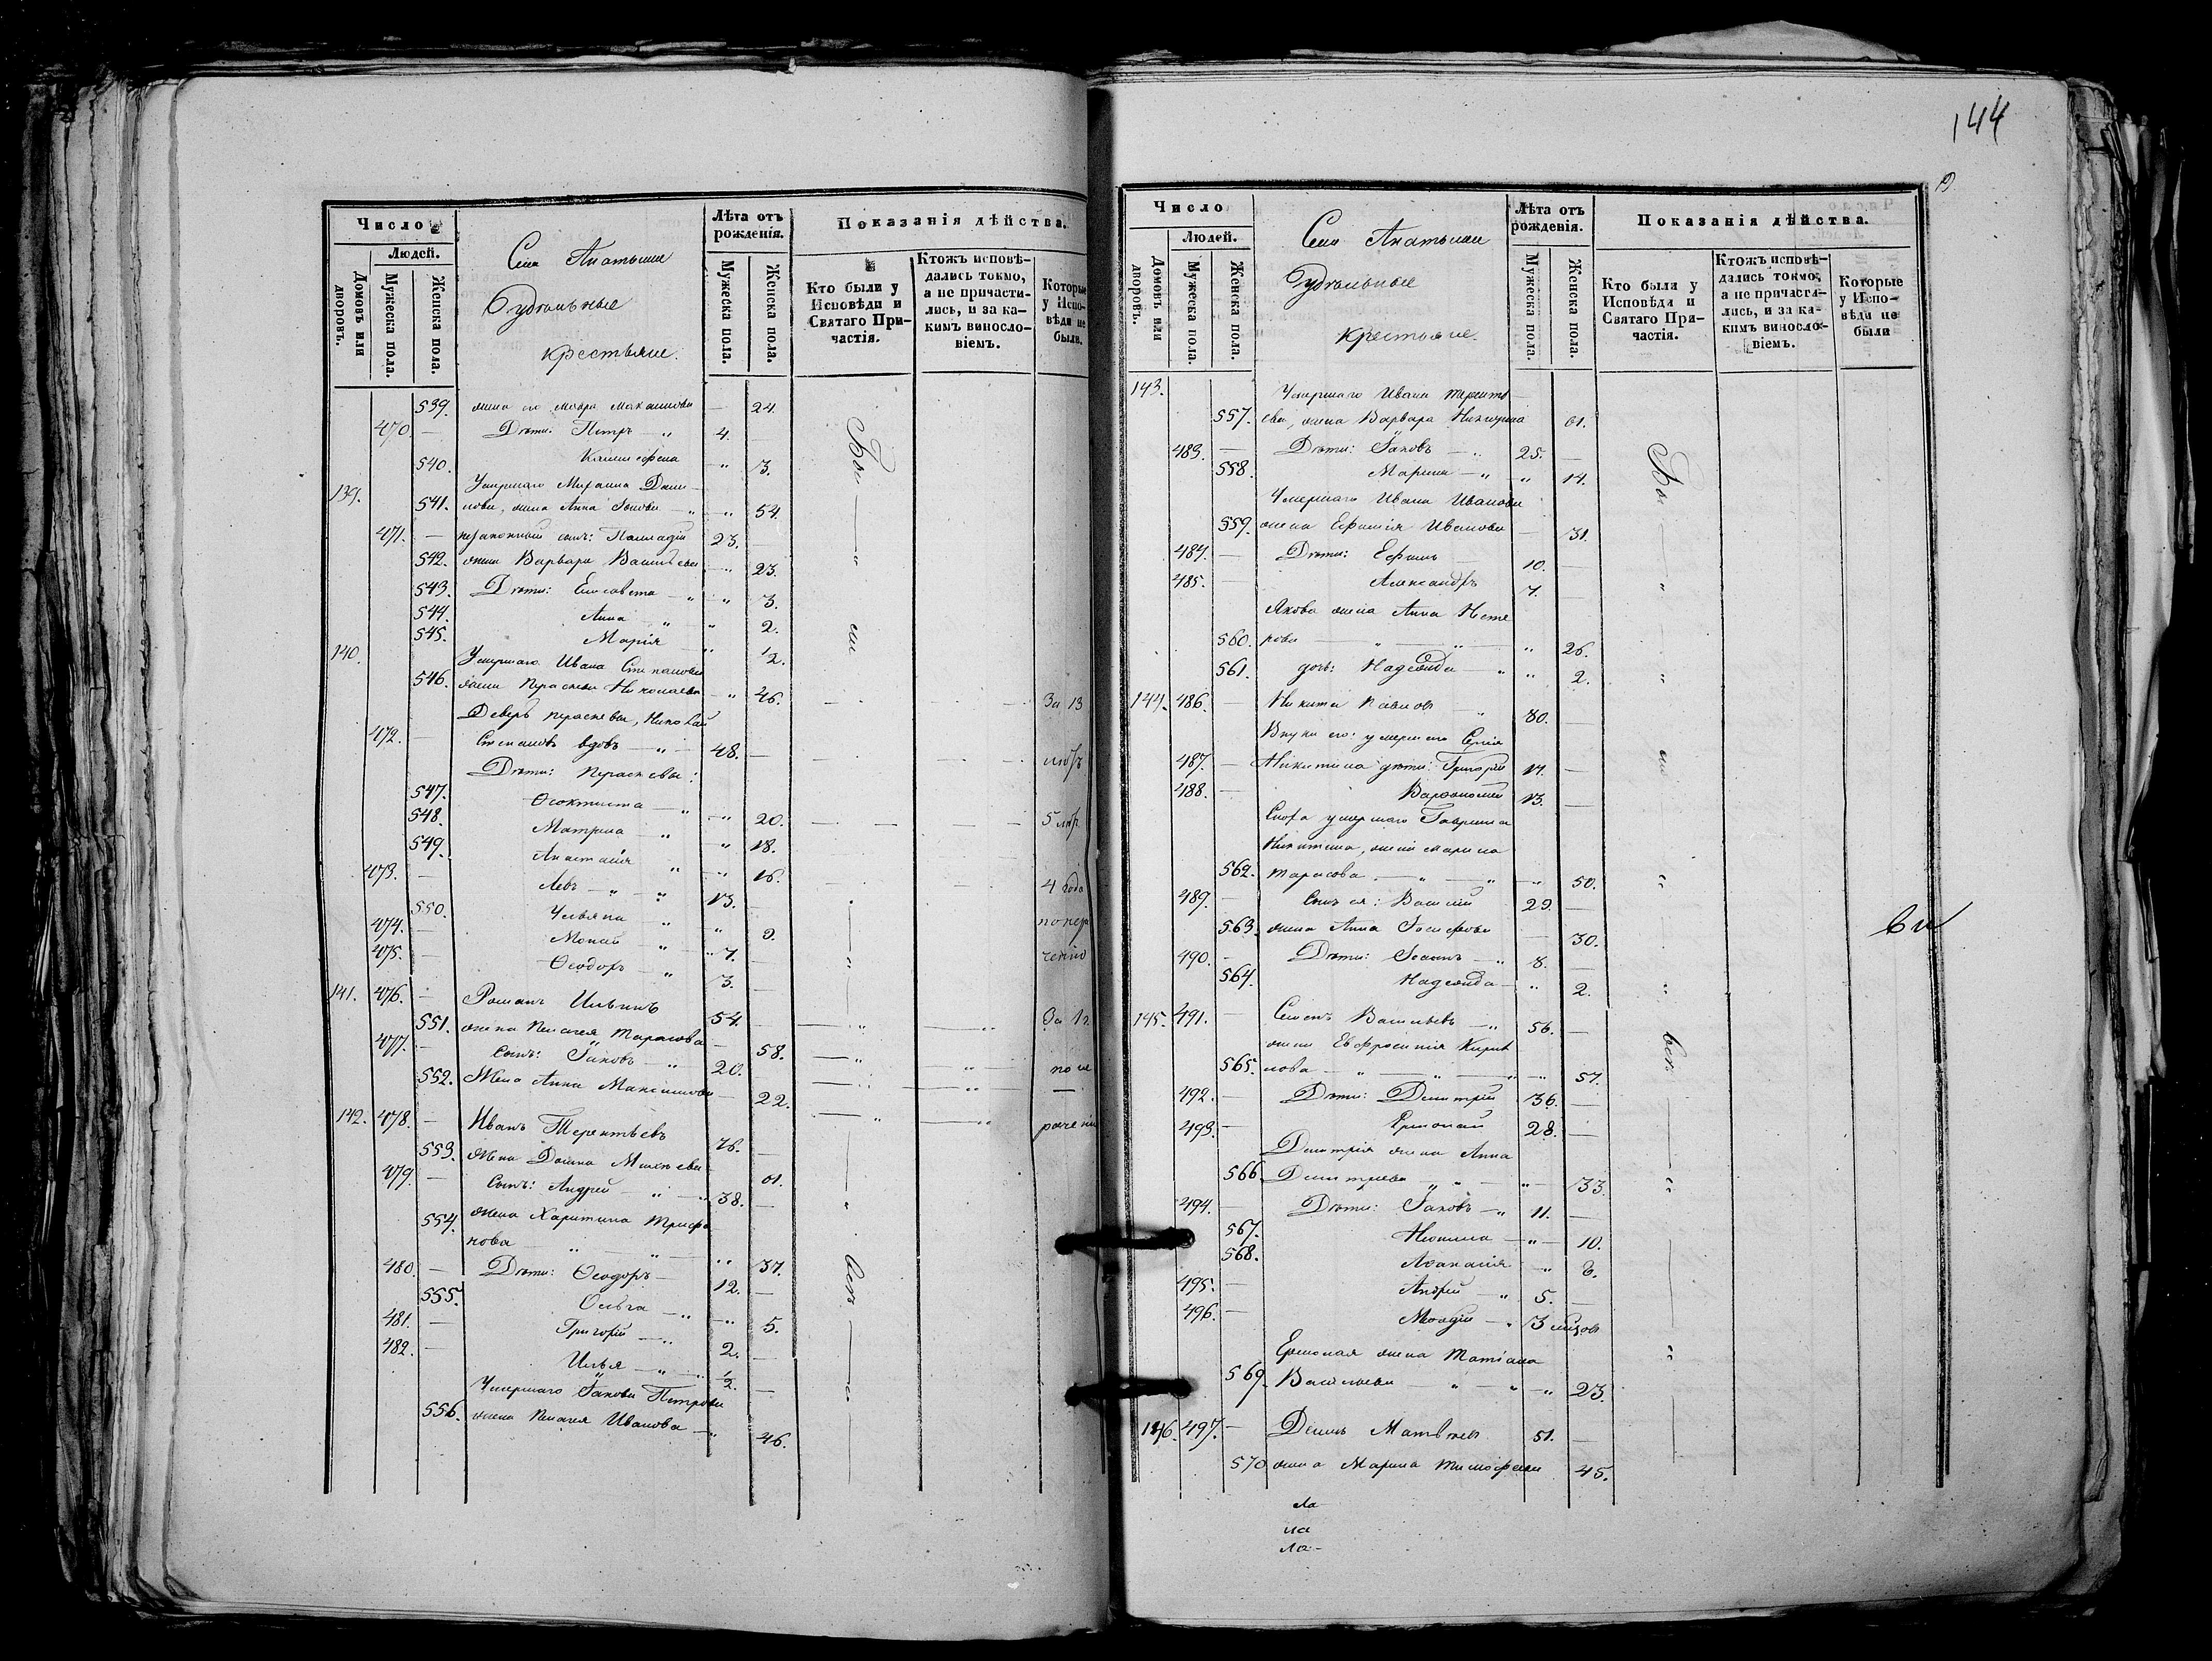 144
Число
Людей.
Домовъ или дворовъ.
Мужеска пола.
Женска пола.
Села
Удѣльные
крестьяне.
Лѣта отъ рожденія.
Мужеска пола.
Женска пола.
Показанія дѣйства.
Кто были у Исповѣди и Святаго Причастія.
Ктожъ исповѣдались токмо, а не причастились, и за какимъ винословіемъ.
Которые у Исповѣди не были.
539. жена его 24.
470. — Дѣти: Петръ — „ 4.
540. — „ 3.
139. Умершаго Михаила Дани-
541. лова, жена Анна — „ — „ 54.
471. — сынъ: Палладій 23. —
542. жена Варвара Васильева — „ 23.
543. Дѣти: Елисавета — „ „ 3.
544. Анна — „ „ 2.
545. Марія „ ½.
140. Умершаго Ивана Степанова
546. жена Параскева Николаева — „ 46. За 13
Деверь Параскевы, Николай
472. — Степановъ вдовъ — „ — 48. —
Дѣти: Параскевы:
547. Ѳеоктиста — „ — „ 20.
548. Матрона — „ „ 18. 5
549. Анастасія „ — „ 16.
473. — Левъ — „ — „ 13. 4 года
550. Ульяна — „ „ 9.
474. — Мокий — „ — „ 7. —
475. — Ѳеодоръ — „ 3. —
141. 476. — Романъ Ильинъ 54. — За 12
551. жена Пелагея Тарасова — 58.
477. — Сынъ: Іаковъ — „ 20. —
552. Жена Анна Максимова — 22.
142. 478. — Иванъ Терентьевъ 76. —
553. Жена Домна 61.
479. — Сынъ: Андрей — „ — „ 38. —
554. жена Харитина Трифо-
нова — „ — „ — „ 37.
480. — Дѣти: Ѳеодоръ — 12. —
555. Ольга — „ — „ 5.
481. — Григорій — „ 2. —
482. — Илья — „ — „ ½. —
Умершаго Іакова Петрова
556. жена Пелагея Иванова — „ 46.
Число
Людей.
Домовъ или дворовъ.
Мужеска пола.
Женска пола.
Села
Удѣльные
крестьяне.
Лѣта отъ рожденія.
Мужеска пола.
Женска пола.
Показанія дѣйства.
Кто были у Исповѣди и Святаго Причастія.
Ктожъ исповѣдались токмо, а не причастились, и за какимъ винословіемъ.
Которые у Исповѣди не были
143. Умершаго Ивана Теренть-
557. ева, жена Варвара 61.
483. — Дѣти: Іаковъ — „ 25. —
558. Марина — „ „ 14.
Умершаго Ивана Иванова
559. жена Ефимія Иванова — 31.
484. — Дѣти: Ефимъ 10. —
485. — Александръ 7. —
Якова жена Анна Пет-
560. рова „ — „ — „ 26.
561. дочь: Надежда — „ „ 2.
144. 486. — Никита Павловъ „ 80. —
Внуки его: умершаго Сергія
487. — Никитина дѣти: Григорій 17. —
488. — Варѳоломей 13. —
Сноха умершаго Гавриила
Никитина, жена Марина
562. Тарасова — „ — „ — „ 50.
489. — Сынъ ея: Василій 29. —
563. жена Анна Іосифова — 30.
490. — Дѣти: Іоаннъ — „ 8. —
564. Надежда — „ 2.
145. 491. — Семенъ Васильевъ — „ 56. —
жена Евфросинія Кирил-
565. лова — „ — „ — „ — „ 57.
492. — Дѣти: Димитрій 36. —
493. — Ермолай 28. —
Димитрія жена Анна
566. Димитріева — „ — „ 33.
494. — Дѣти: Іаковъ — „ 11. —
567. „ — 10.
568. Аѳанасія — „ 8.
495. — Андрей — „ 5. —
496. — — „ 3
Ермолая жена Татіана
569. Васильева — „ — „ — „ 23.
146. 497. — Демидъ Матвѣевъ 51. —
570. жена Марина Тимофеева 45.